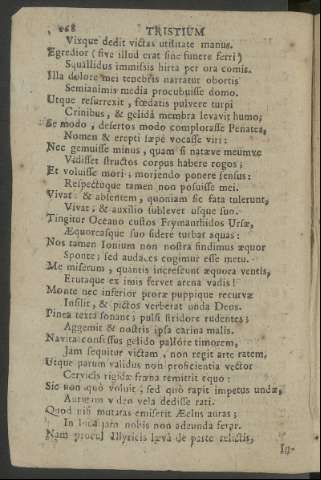 268 TRISTIUM
Vixque dedit victas utilitate manus.
Egredior (sive illud erat sine funere ferri)
Squallidus immissis hirta per ora comis.
Illa dolore mei tenebris narratur obortis
Semianimis media procubuisse domo.
Utque resurrexit, fœdatis pulvere turpi
Crinibus, & gelidâ membra levavit humo;
Se modo, desertos modo complorasse Penates,
Nomen & erepti sæpè vocasse viri:
Nec gemuisse minus, quam si natæve meumve
Vidisset structos corpus habere rogos;
Et voluisse mori; moriendo ponere sensus:
Respectuque tamen non posuisse mei.
Vivat: & absentem, quoniam sic fata tulerunt,
Vivat, & auxilio sublevet usque suo.
Tingitur Oceano custos Erymanthidos Ursæ,
Æquoreasque suo sidere turbat aquas:
Nos tamen Ionium non nostra findimus æquor
Sponte; sed audaces cogimur esse metu.
Me miserum, quantis increscunt æquora ventis,
Erutaque ex imis fervet arena vadis!
Monte nec inferior proræ puppique recurvæ
Insilit, & pictos verberat unda Deos.
Pinea texta sonant; pulsi stridore rudentes;
Aggemit & nostris ipsa carina malis.
Navita confessus gelido pallore timorem,
Jam sequitur victam, non regit arte ratem.
Utque parum validus non proficientia vector
Cervicis rigidæ fræna remittit equo:
Sic non quò voluit, sed quò rapit impetus undæ,
Aurigam video vela dedisse rati.
Quod nisi mutatas emiserit Æolus auras;
In loca jam nobis non adeunda ferar.
Nam procul Illyricis lævâ de parte relictis,